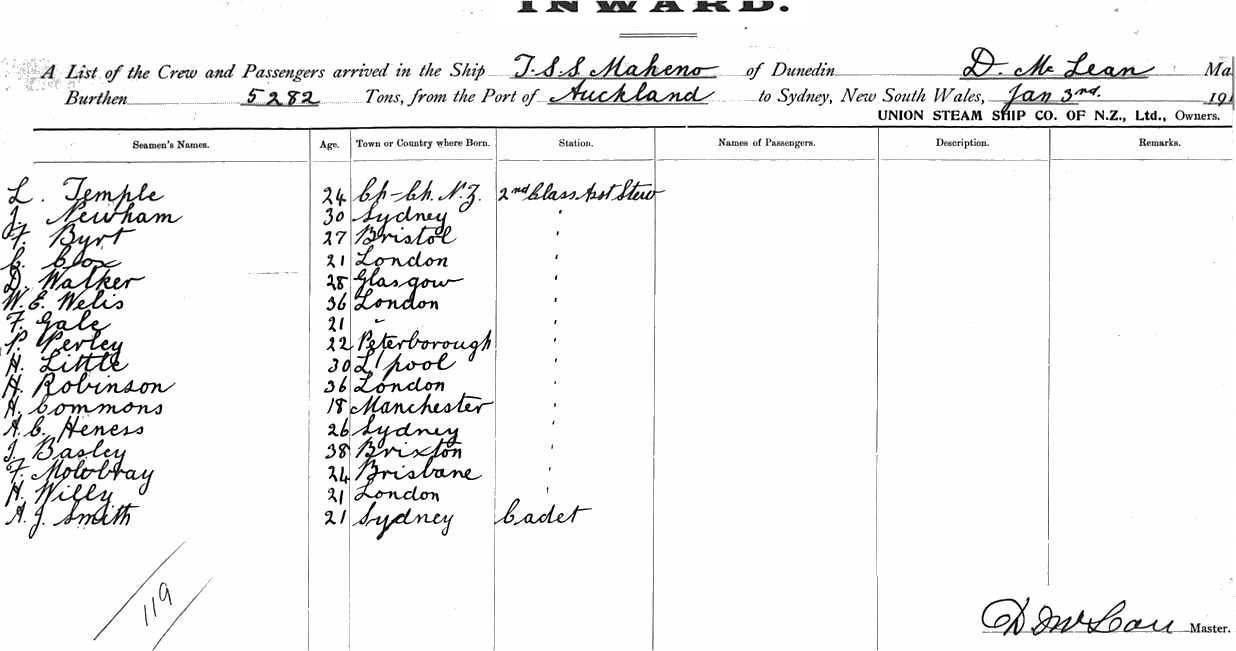 INWARD.
A List of the Crew and Passengers arrived in the Ship T.S.S Maheno of Dunedin D. Mc Lean Ma
Burthen 5282 Tons, from the Port of Auckland to Sydney, New South Wales, Jan 3rd. 191
UNION STEAM SHIP CO. OF N.Z., Ltd., Owners.
Seamen's Names. Age. Town or Country where Born. Station. Names of Passengers. Description. Remarks.
L. Temple 24 Ch-Ch. N.Z. 2nd Class Asst Stew
J. Newham 30 Sydney '
F. Byrt 27 Bristol '
C. Cox 21 London '
D. Walker 28 Glasgow '
W. E. Welis 36 London '
F. Gale 21 " '
P. Perley 22 Peterborough '
H. Little 30 L'pool '
H. Robinson 36 London '
H. Commons 18 Manchester '
A. C. Heness 26 Sydney '
J. Basley 38 Brixton '
F. Molobray 24 Brisbane '
H. Willy 21 London '
A. J. Smith 21 Sydney Cadet
119
D McLean Master.